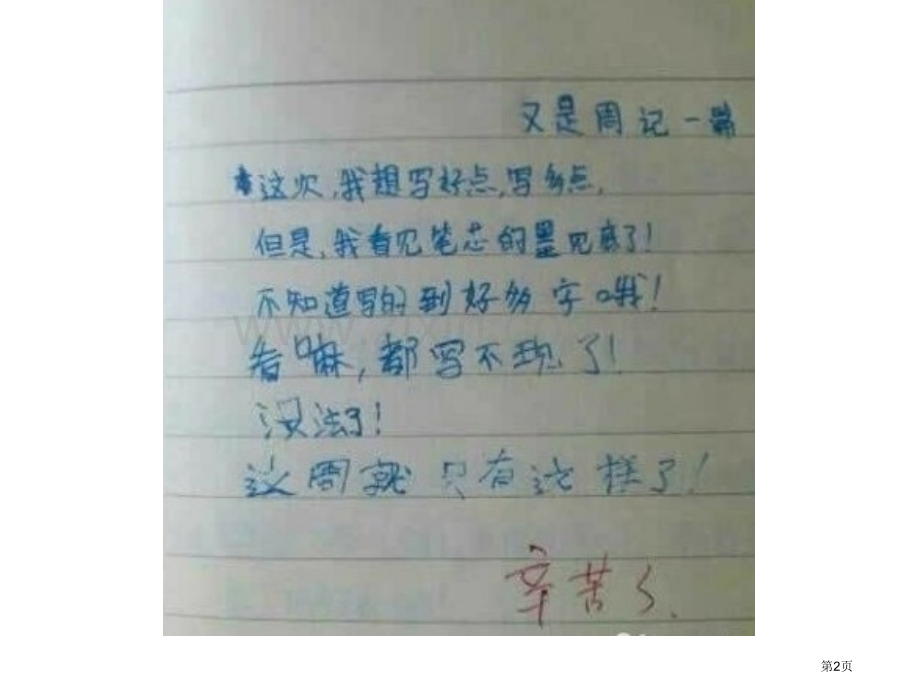 又是周记一篇
这次,我想写好点,写多点,
但是,我看见笔芯的墨见底了!
不知道写的到好多字哦!
看嘛,都写不现了!
没法了!
这周就只有这样了!
辛苦了.
第2页